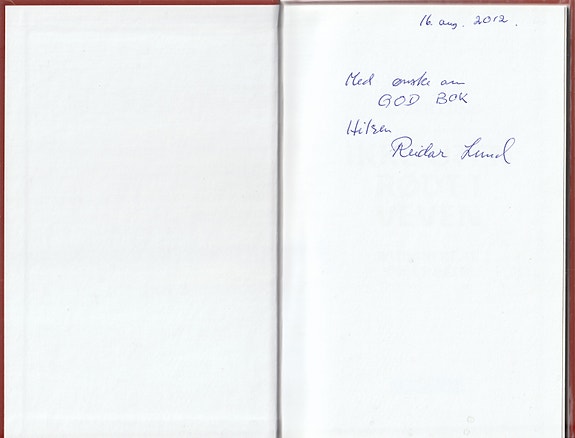 16. aug. 2012.
Med ønske om
GOD BOK
Hilsen
Reidar Lund